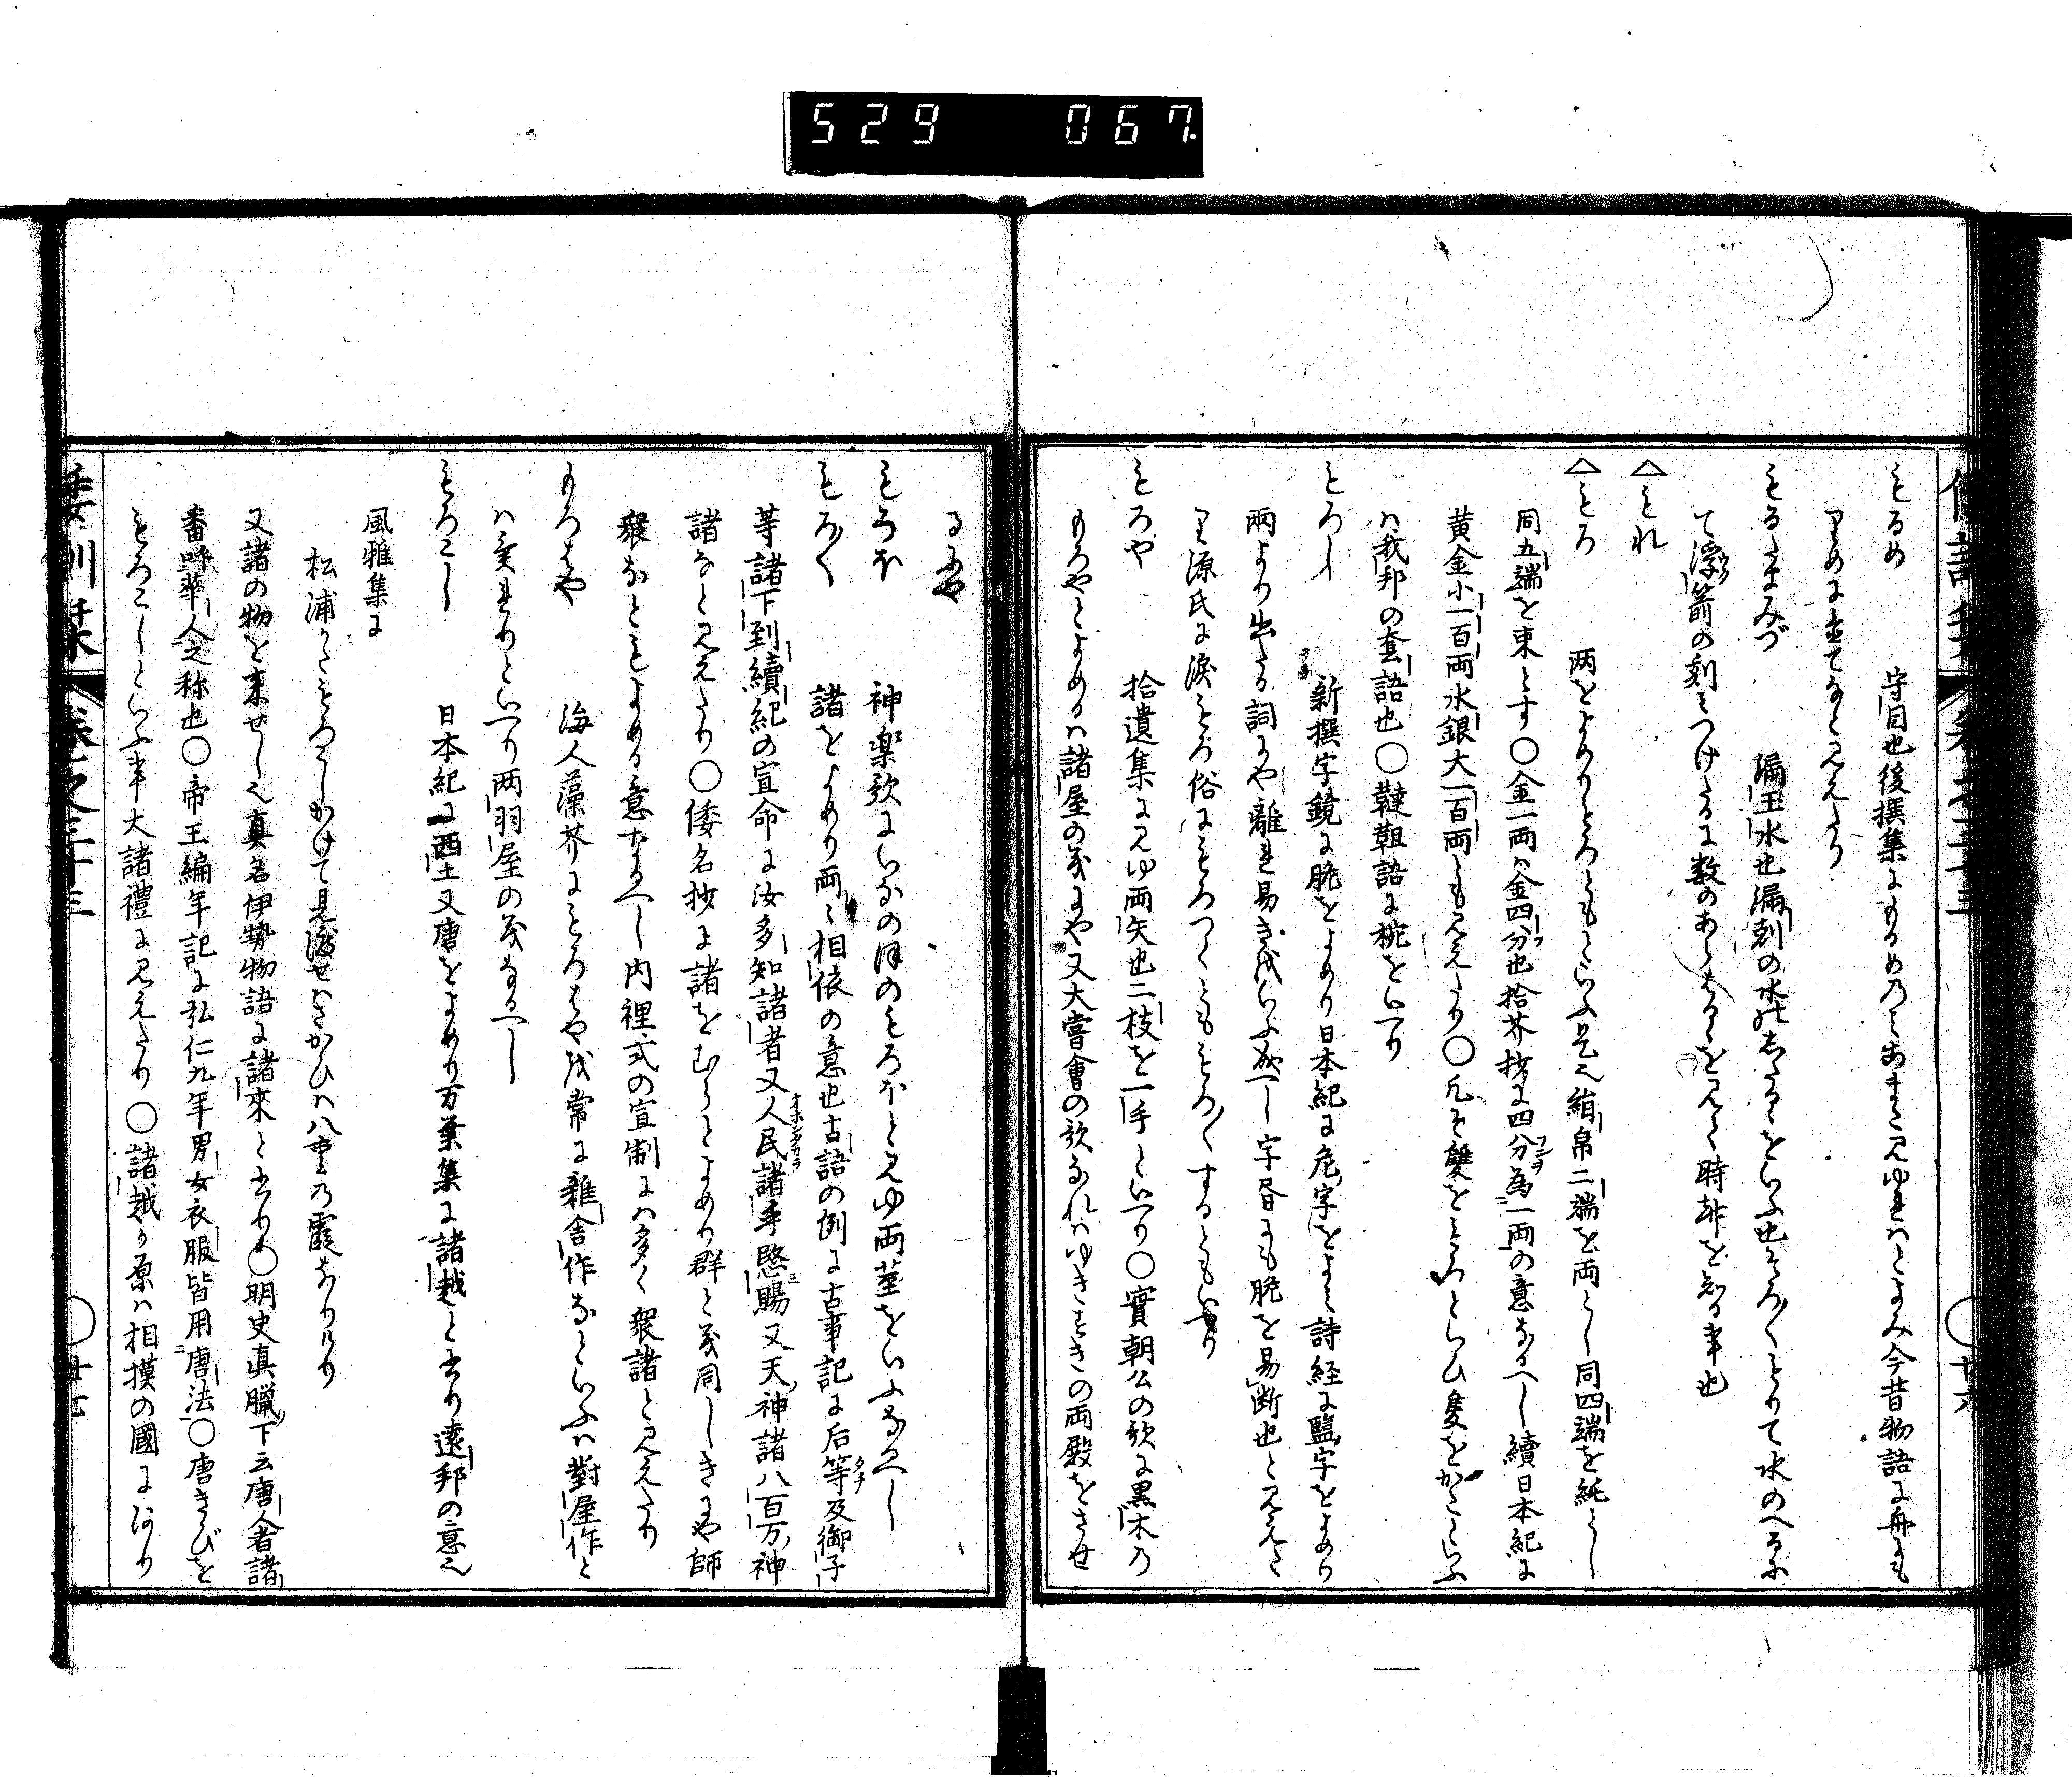 529 067
もるめ 守目也後撰集にもるめのみあまたみゆれはとよみ今昔物語に舟も
りめに立てなと見えたり
もるたまみづ 漏玉水也漏刻の水のしたるをいふ也そろ〳〵とりて水のへるに
て浮箭の刻みつけたるに数のあらはるゝを見て時尅を知る事也
△もれ
△もろ 両をよめりもろともともいふ是也絹帛二端を両とし同四端を純とし
同五端を束とす〇金一両ハ金四分也拾芥抄に四分為一両の意なるへし續日本紀に
黄金小一百両水銀大一百両とも見えたり〇凡そ雙をもろといひ隻をかたしといふ
ハ我邦の套語也〇韃靼語に椀をいへり
もろし 新撰字鏡に脆をよめり日本紀に危字をよみ詩経に盬字をよめり
両より出たる詞にや離れ易きをいふ成へし字書にも脆を易断也と見えた
り源氏に涙もろ俗にもろつくももろ〳〵するともいへり
もろや 拾遺集に見ゆ両矢也二枝を一手といへり〇實朝公の歌に黒木の
もろやとよめるハ諸屋の義にや又大嘗會の歌なれハゆきすきの両殿をさせ
るにや
もろほ 神楽歌にいなのほのもろほと見ゆ両莖をいふなるへし
もろ〳〵 諸をよめり両々相依の意也古語の例に古事記に后等及御子
等諸下到續紀の宣命に汝多知諸者又人民諸手愍賜又天神諸八百万神
諸なと見えたり〇倭名抄に諸をむらとよめり群と義同しきにや師
衆なともよめる意なるへし内裡式の宣制にハ多く衆諸と見えたり
もろはや 海人藻芥にもろはや我常に雑舎作なといふハ對屋作と
ハ異れりといへり両羽屋の義なるへし
もろこし 日本紀に西土又唐をよめり万葉集に諸越と書り遠邦の意也
風雅集に
松浦かたもろこしかけて見渡せはさかひハ八重の霞なりけり
又諸の物を来せし也真名伊勢物語に諸來と書り〇明史真臘下云唐人者諸
番呼華人之称也〇帝王編年記に弘仁九年男女衣服皆用唐法〇唐きびを
もろこしといふ事大諸禮に見えたり〇諸越か原ハ相摸の國にあり
倭訓栞 巻之三十三 〇廿七